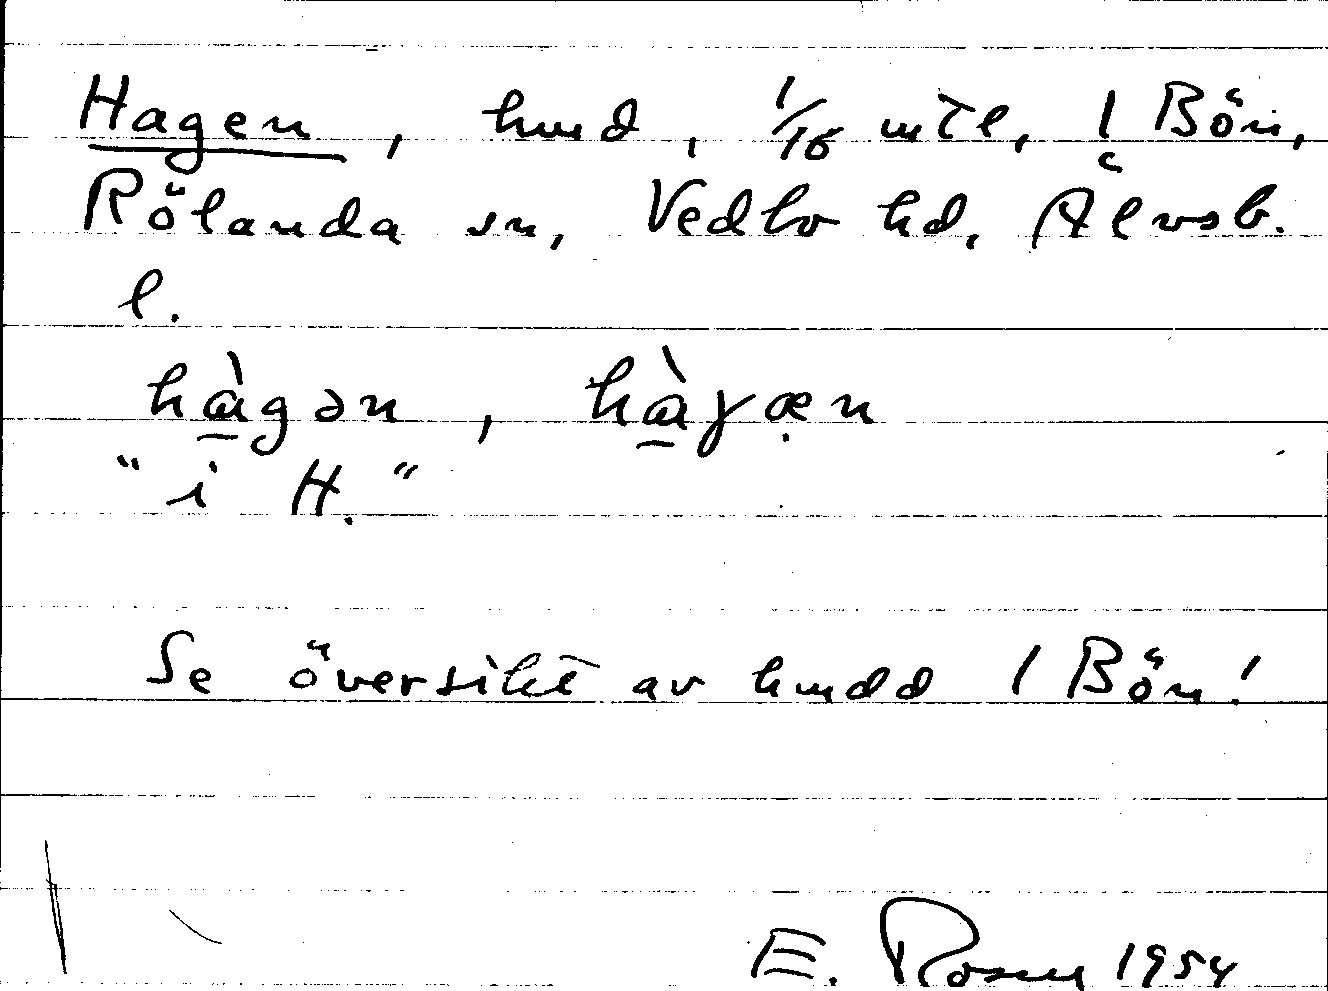 Hagen, hmd, 1/16 mtl, 1 Bön,
Rölanda sn, Vedbo hd, Älvsb.
l.
hàgən, hàɣæ̣n
"i H."
Se översikt av hmdd 1 Bön!
E. Rosen 1954